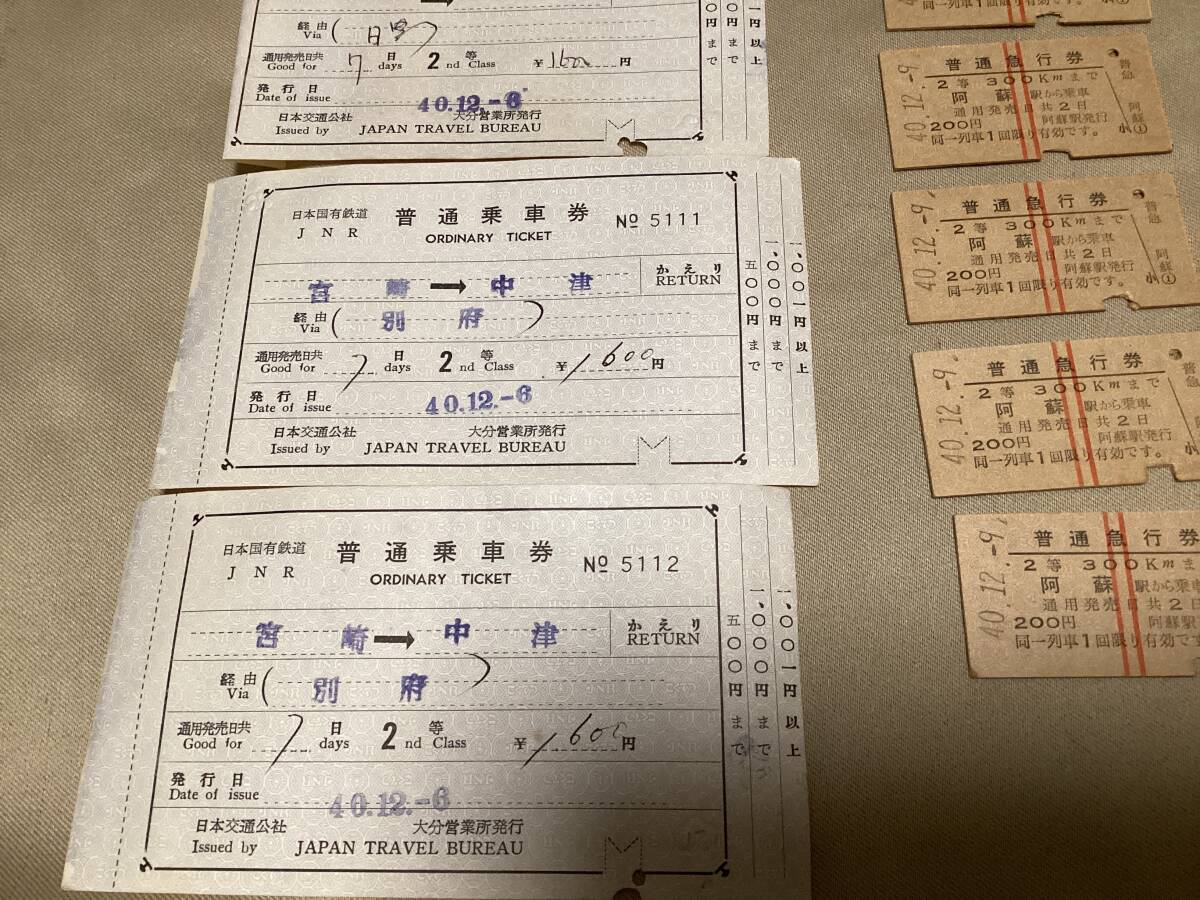 経由
Via ( 日豊 )
通用発売日共 7 日 2 等 ¥1600 円
Good for days nd Class
発行日
Date of issue 40.12.-6
日本交通公社 大分営業所発行
Issued by JAPAN TRAVEL BUREAU
円まで
円まで
円以上
日本国有鉄道 普通乗車券 No 5111
JNR ORDINARY TICKET
宮崎→中津 かえり
RETURN
経由
Via ( 別府 )
通用発売日共 7 日 2 等 ¥1600 円
Good for days nd Class
発行日
Date of issue 40.12.-6
日本交通公社 大分営業所発行
Issued by JAPAN TRAVEL BUREAU
五〇〇円まで
一、〇〇〇円まで
一、〇〇一円以上
日本国有鉄道 普通乗車券 No 5112
JNR ORDINARY TICKET
宮崎→中津 かえり
RETURN
経由
Via ( 別府 )
通用発売日共 7 日 2 等 ¥1600 円
Good for days nd Class
発行日
Date of issue 40.12.-6
日本交通公社 大分営業所発行
Issued by JAPAN TRAVEL BUREAU
五〇〇円まで
一、〇〇〇円まで
一、〇〇一円以上
同一列車1回限り有効です。
小①
40.12.-9
普通急行券
2等 300Kmまで
阿蘇駅から乗車
通用発売日共2日
200円 阿蘇駅発行
同一列車1回限り有効です。
普急
阿蘇
小①
40.12.-9
普通急行券
2等 300Kmまで
阿蘇駅から乗車
通用発売日共2日
200円 阿蘇駅発行
同一列車1回限り有効です。
普急
阿蘇
小①
40.12.-9
普通急行券
2等 300Kmまで
阿蘇駅から乗車
通用発売日共2日
200円 阿蘇駅発行
同一列車1回限り有効です。
普急
阿
小
40.12.-9
普通急行券
2等 300Kmま
阿蘇駅から乗車
通用発売日共2日
200円 阿蘇駅
同一列車1回限り有効です